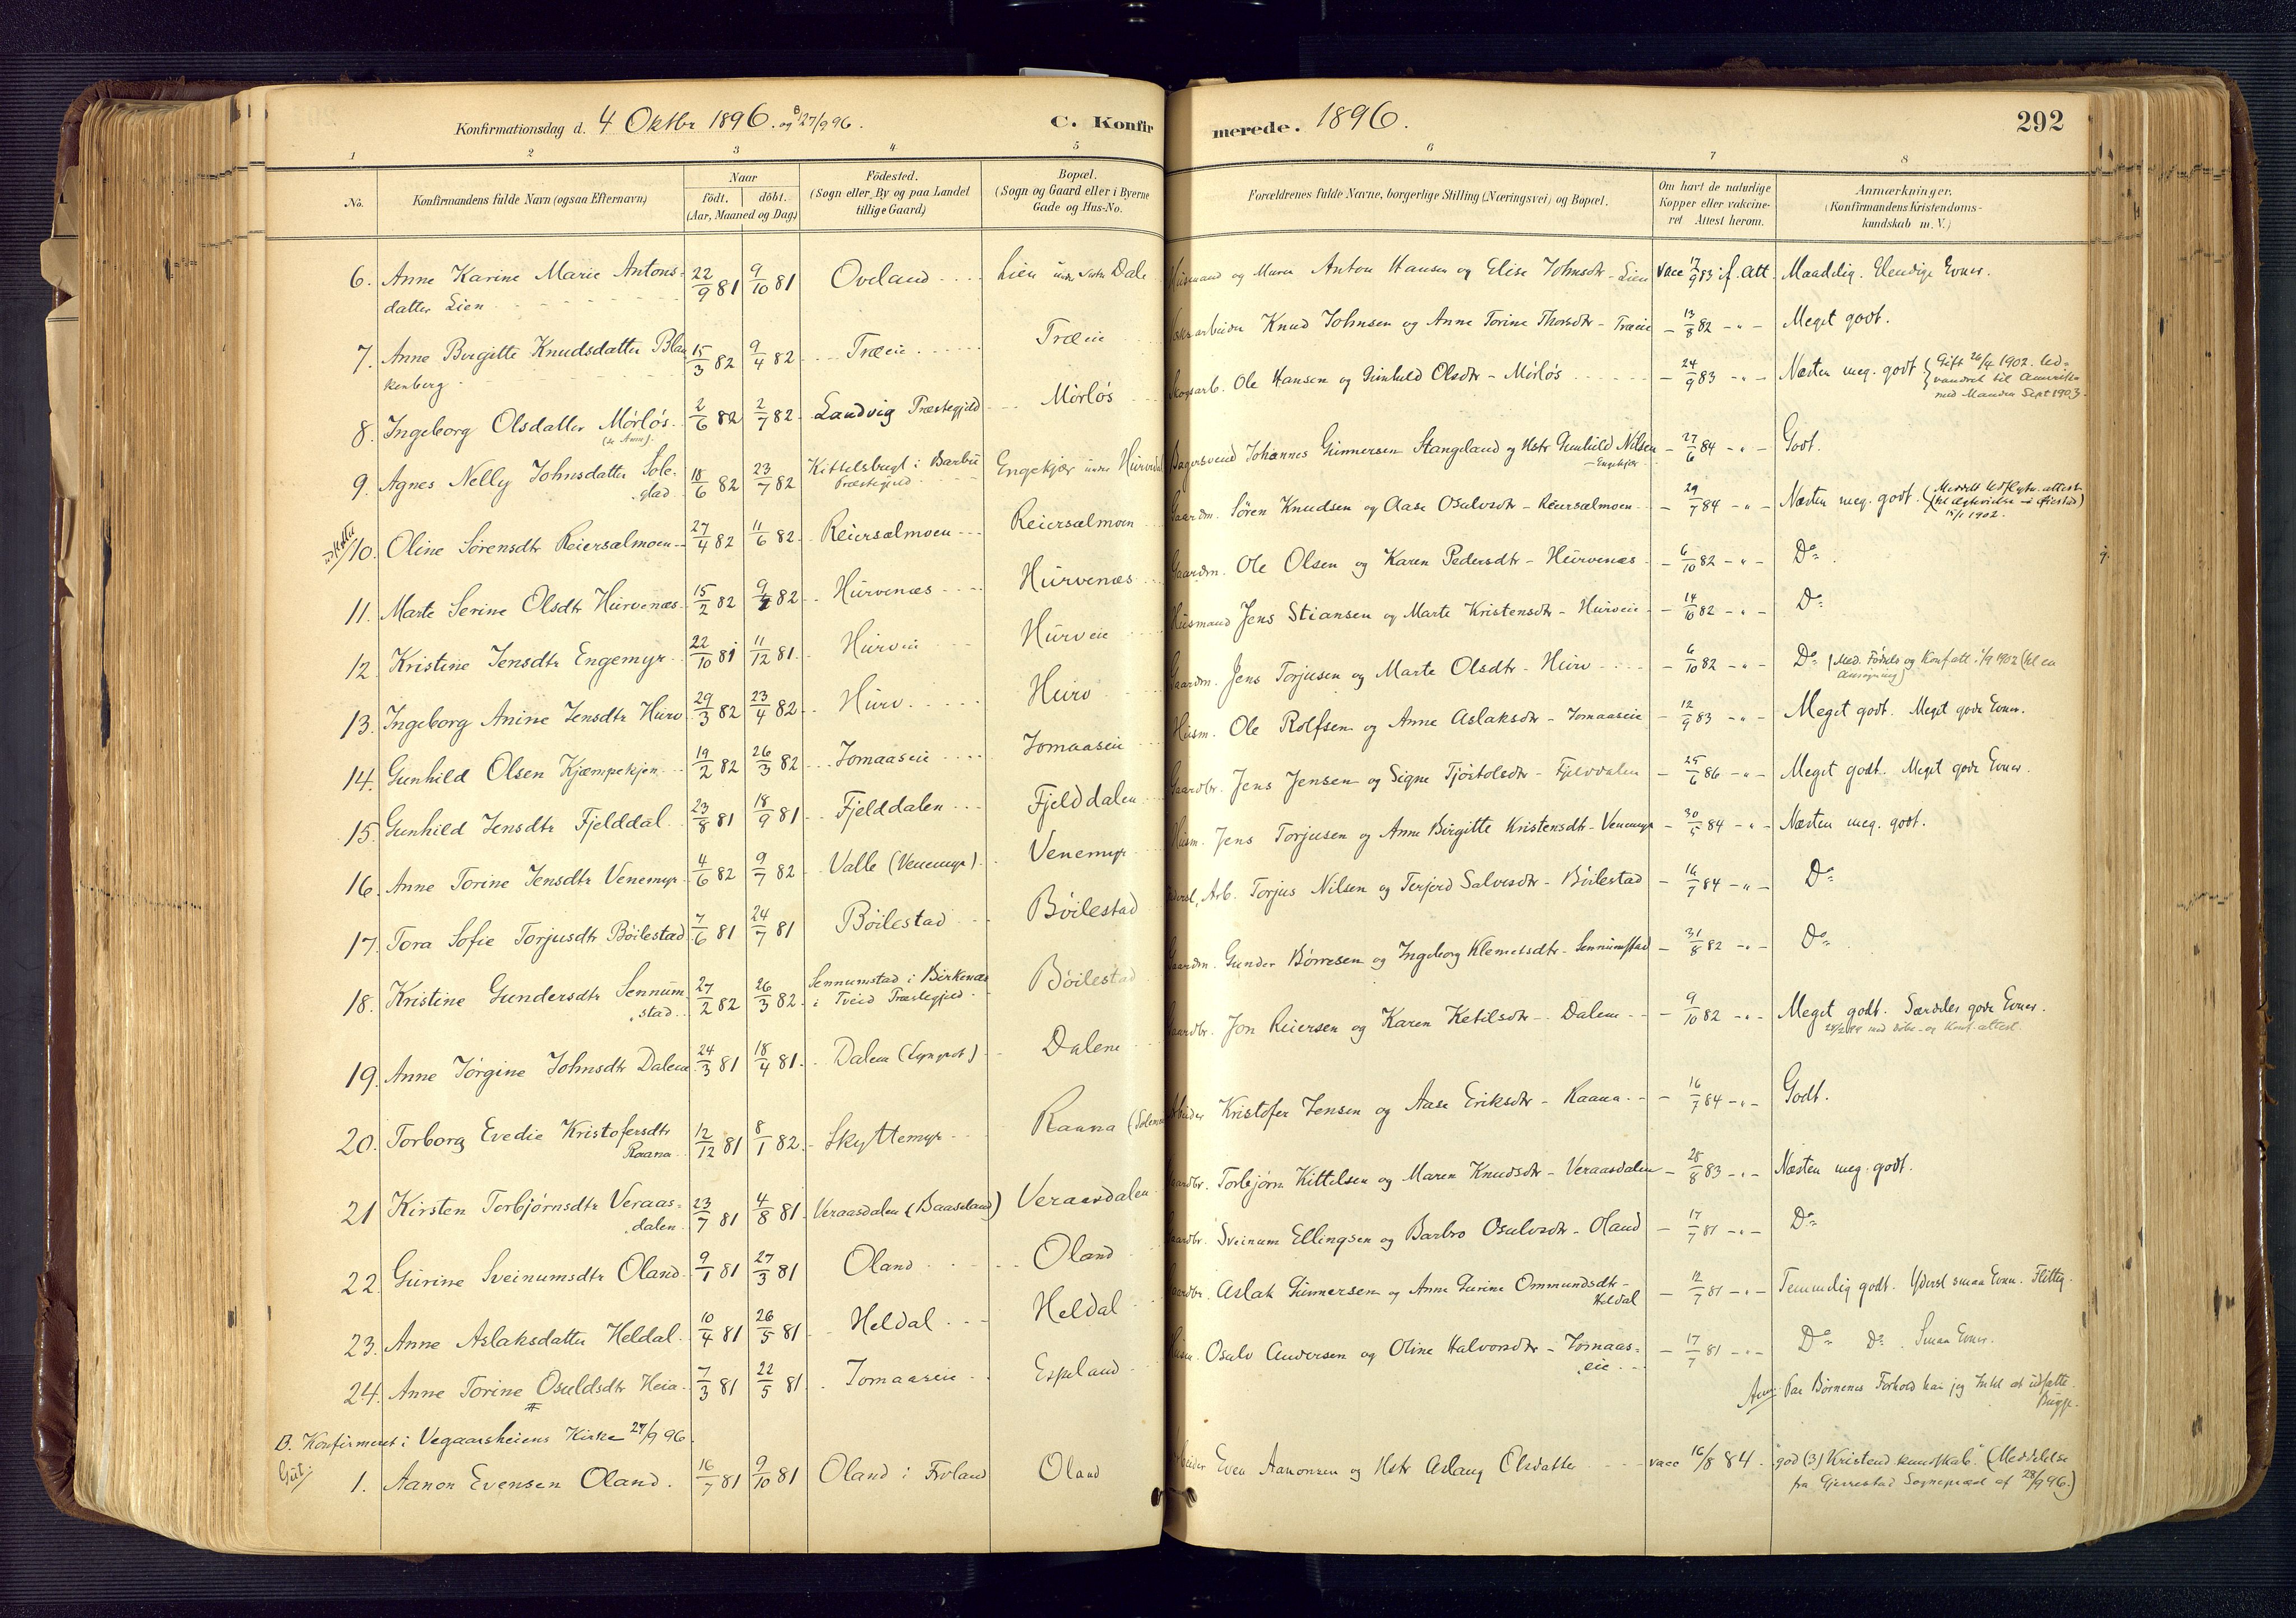 Konfirmationsdag d. 4 Oktbr 1896. og 27/9 96. C. Konfirmerede. 1896. 292
1 2 3 4 5 6 7 8
No. Konfirmandens fulde Navn (ogsaa Efternavn) Naar födt. döbt. (Aar, Maaned og Dag) Födested. (Sogn eller By og paa Landet tillige Gaard) Bopæl. (Sogn og Gaard eller i Byerne Gade og Hus-No. Forældrenes fulde Navne, borgerlige Stilling (Næringsvei) og Bopæl. Om havt de naturlige Kopper eller vakcineret Attest herom. Anmærkninger. (Konfirmandens Kristendomskundskab m. V.)
6. Anne Karine Marie Antons- 22/9 81 9/10 81 Oveland Lien Dale Husmand og Murer Anton Hansen og Elise Johnsdtr - Lien Vacc 17/9 83 if. att. Maadelig. Elendige Evner.
datter Lien
7. Anne Birgitte Knudsdatter Blan 15/3 82 9/4 82 Træeie Træeie Knud Johnsen og Anne Torine Thorsdtr - Træeie - 13/8 82 - " - Meget godt.
kenberg
8. Ingeborg Olsdatter Mörlös 2/6 82 2/7 82 Landvig Præstegjeld Mörlös Skogsarb. Ole Hansen og Gunhild Olsdtr - Mörlös - 24/9 83 - " - Næsten meg. godt { Gift 26/4 1902. Ud-
vandret til Amerika
med Manden Sept 1903.
9. Agnes Nelly Johnsdatter Sole- 18/6 82 23/7 82 Kittelsbugt i Barbu Engekjær under Bagersvend Johannes Gunnersen Stangeland og Hstr Gunhild Nilsen - 27/6 84 - " - Godt.
glad Præstegjeld - Engekjær
10. Oline Sörensdtr Reiersælmoen 27/4 82 11/6 82 Reiersælmoen Reiersælmoen Gaardm. Sören Knudsen og Aase Osulvsdtr - Reiersælmoen - 29/7 84 - " - Næsten meg. godt. (Meddelt Udflytn. attest
1902.
11. Marte Serine Olsdtr Hurvenæs 15/2 82 82 Hurvenæs Hurvenæs Gaardm. Ole Olsen og Karen Pedersdtr - Hurvenæs - 6/10 82 - " - Do
12 Kristine Jensdtr Engemyr 22/10 81 11/12 81 Hurveie Hurveie Husmand Jens Stiansen og Marte Kristensdtr - Hurveie - 14/10 82 - " - Do
13. Ingeborg Anine Jensdtr Hurv 29/3 82 23/4 82 Hurv Hurv Gaardm. Jens Torjusen og Marte Olsdtr - Hurv - 6/10 82 - " - Do (Med. Födsels og Konf att. 1902
14. Gunhild Olsen Kjæmpekjen 19/2 82 26/3 82 Tomaaseie Tomaaseie Husm. Ole Rolfsen og Anne Aslaksdtr - Tomaaseie - 12/9 83 - " - Meget godt. Meget gode Evner.
15. Gunhild Jensdtr Fjelddal 23/8 81 18/9 81 Fjelddalen Fjelddalen Gaardbr. Jens Jensen og Signe Tjöstolsdtr - Fjelddalen - 25/6 86 - " - Meget godt. Meget gode Evner.
16. Anne Torine Jensdtr Venemyr 4/6 82 9/7 82 Valle (Venemyr) Venemyr Husm. Jens Torjusen og Anne Birgitte Kristensdtr - Venemyr - 30/5 84 - " - Næsten meg. godt.
17. Tora Sofie Torjusdtr Böilestad 7/6 81 24/7 81 Böilestad Böilestad Arb. Torjus Nilsen og Terjerd Salvesdtr - Böilestad - 16/7 84 - " - Do
18. Kristine Gundersdtr Sennum- 27/2 82 26/3 82 Sennumstad i Birkenæs Böilestad Gaardm. Gunder Börresen og Ingeborg Klemetsdtr - Sennumstad - 31/8 82 - " - Do
stad i Tveid Præstegjeld
19. Anne Jörgine Johnsdtr Dalene 24/3 81 18/4 81 Dalene Dalene Gaardbr. Jon Reiersen og Karen Ketilsdtr - Dalene - 9/10 82 - " - Meget godt. Særdeles gode Evner.
med Döbs- og Konf. attest
20. Torborg Evedie Kristofersdtr 12/12 81 8/1 82 Skyttemyr Raana Arbeider Kristofer Jensen og Aase Eriksdtr - Raana - 16/7 84 - " - Godt.
Raana
21 Kirsten Torbjörnsdtr Veraas- 23/7 81 4/8 81 Veraasdalen (Baaseland) Veraasdalen Gaardbr. Torbjörn Kittelsen og Maren Knudsdtr - Veraasdalen - 28/8 83 - " - Næsten meg. godt.
dalen
22. Gurine Sveinumsdtr Oland 9/1 81 27/3 81 Oland Oland Gaardbr. Sveinum Ellingsen og Barbro Osulvsdtr - Oland - 17/7 81 - " - Do
23. Anne Aslaksdatter Heldal 10/4 81 26/5 81 Heldal Heldal Gaardbr. Aslak Gunnersen og Anne Gurine Ommundsdtr - - 12/7 81 - " - Temmelig godt. Yderst smaa Evner. Flittig.
Heldal
24. Anne Torine Osuldsdtr Heia 7/3 81 22/5 81 Tomaaseie Espeland Husm. Osulv Andersen og Oline Halvorsdtr - Tomaas- - 17/7 81 - " - Do Do. Smaa Evner.
eie
Anm: Paa Börnenes Forhold har jeg Intet at udsætte.
Bugge.
B. Konfirmeret i Vegaarsheiens Kirke 27/9 96
Gut:
1. Aanon Evensen Oland. 16/7 81 9/10 81 Oland i Froland Oland Arbeider Even Aanonsen og Hstr Aslaug Olsdatter vacc 16/8 84. "god (3) Kristend kundskab." (Meddelelse
fra Gjerrestad Sognepræst af 28/9 96.)